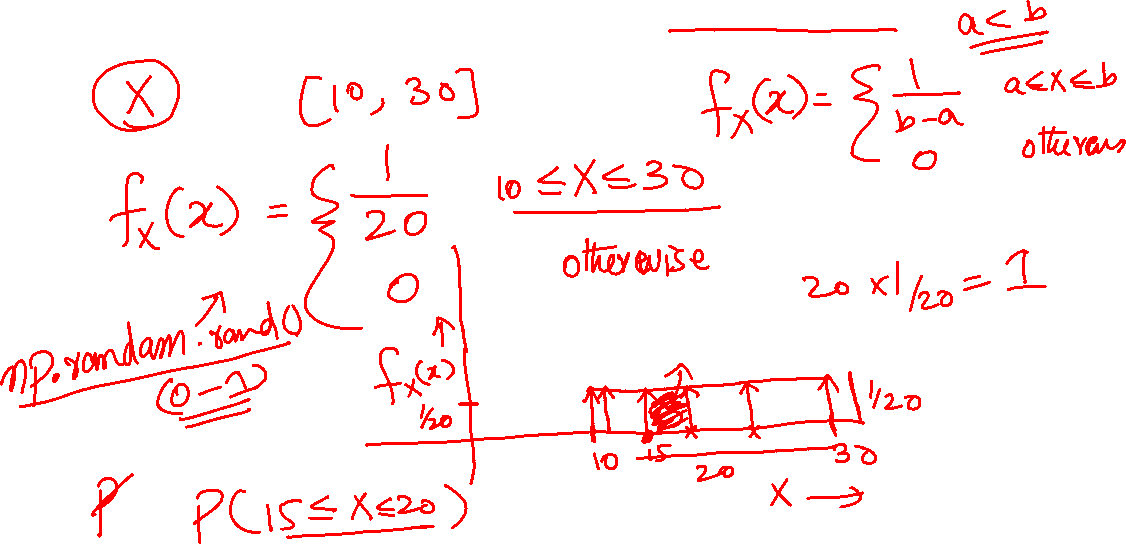 a<b
X [10, 30]
f_X(x) = { 1/(b-a) a≤X≤b
0
f_X(x) = { 1/20 10 ≤ X ≤ 30
0 otherwise
20 x 1/20 = 1
np.random.rand()
(0-1)
f_X(x)
1/20
1/20
10 15 20 30
X →
P P(15 ≤ X ≤ 20)